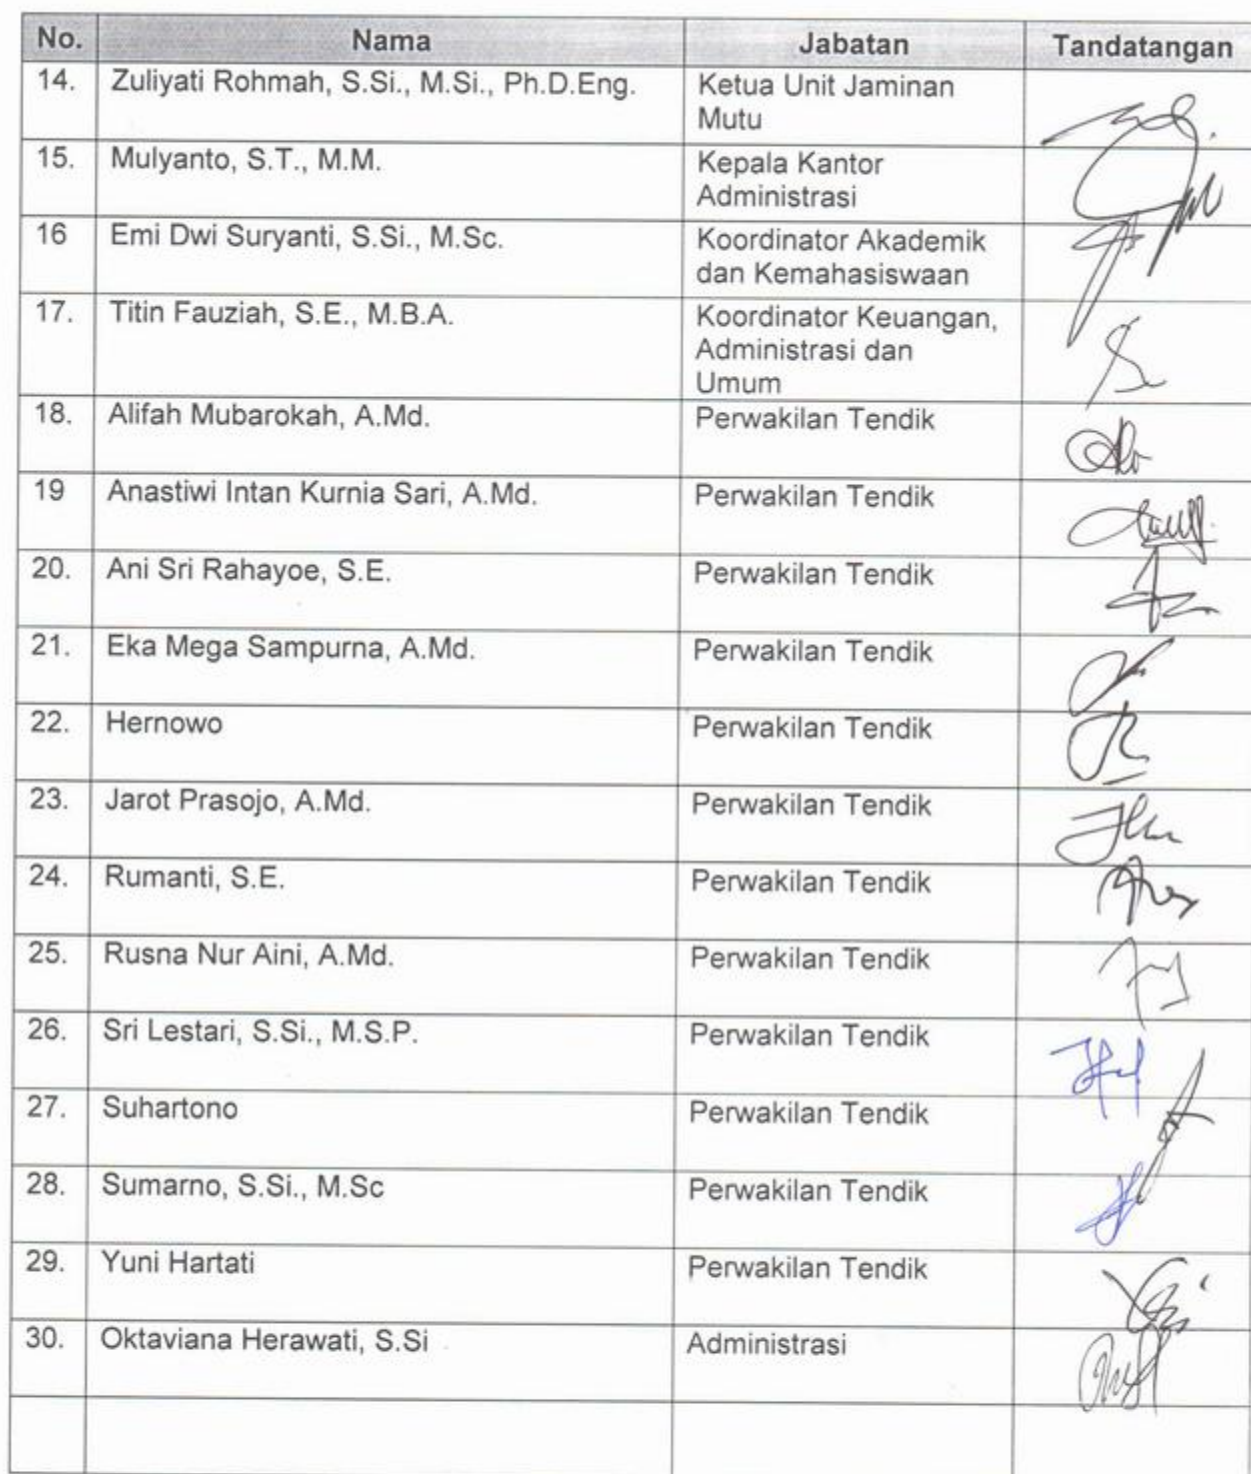 No. Nama Jabatan Tandatangan
14. Zuliyati Rohmah, S.Si., M.Si., Ph.D.Eng. Ketua Unit Jaminan
Mutu
15. Mulyanto, S.T., M.M. Kepala Kantor
Administrasi
16 Emi Dwi Suryanti, S.Si., M.Sc. Koordinator Akademik
dan Kemahasiswaan
17. Titin Fauziah, S.E., M.B.A. Koordinator Keuangan,
Administrasi dan
Umum
18. Alifah Mubarokah, A.Md. Perwakilan Tendik
19 Anastiwi Intan Kurnia Sari, A.Md. Perwakilan Tendik
20. Ani Sri Rahayoe, S.E. Perwakilan Tendik
21. Eka Mega Sampurna, A.Md. Perwakilan Tendik
22. Hernowo Perwakilan Tendik
23. Jarot Prasojo, A.Md. Perwakilan Tendik
24. Rumanti, S.E. Perwakilan Tendik
25. Rusna Nur Aini, A.Md. Perwakilan Tendik
26. Sri Lestari, S.Si., M.S.P. Perwakilan Tendik
27. Suhartono Perwakilan Tendik
28. Sumarno, S.Si., M.Sc Perwakilan Tendik
29. Yuni Hartati Perwakilan Tendik
30. Oktaviana Herawati, S.Si Administrasi